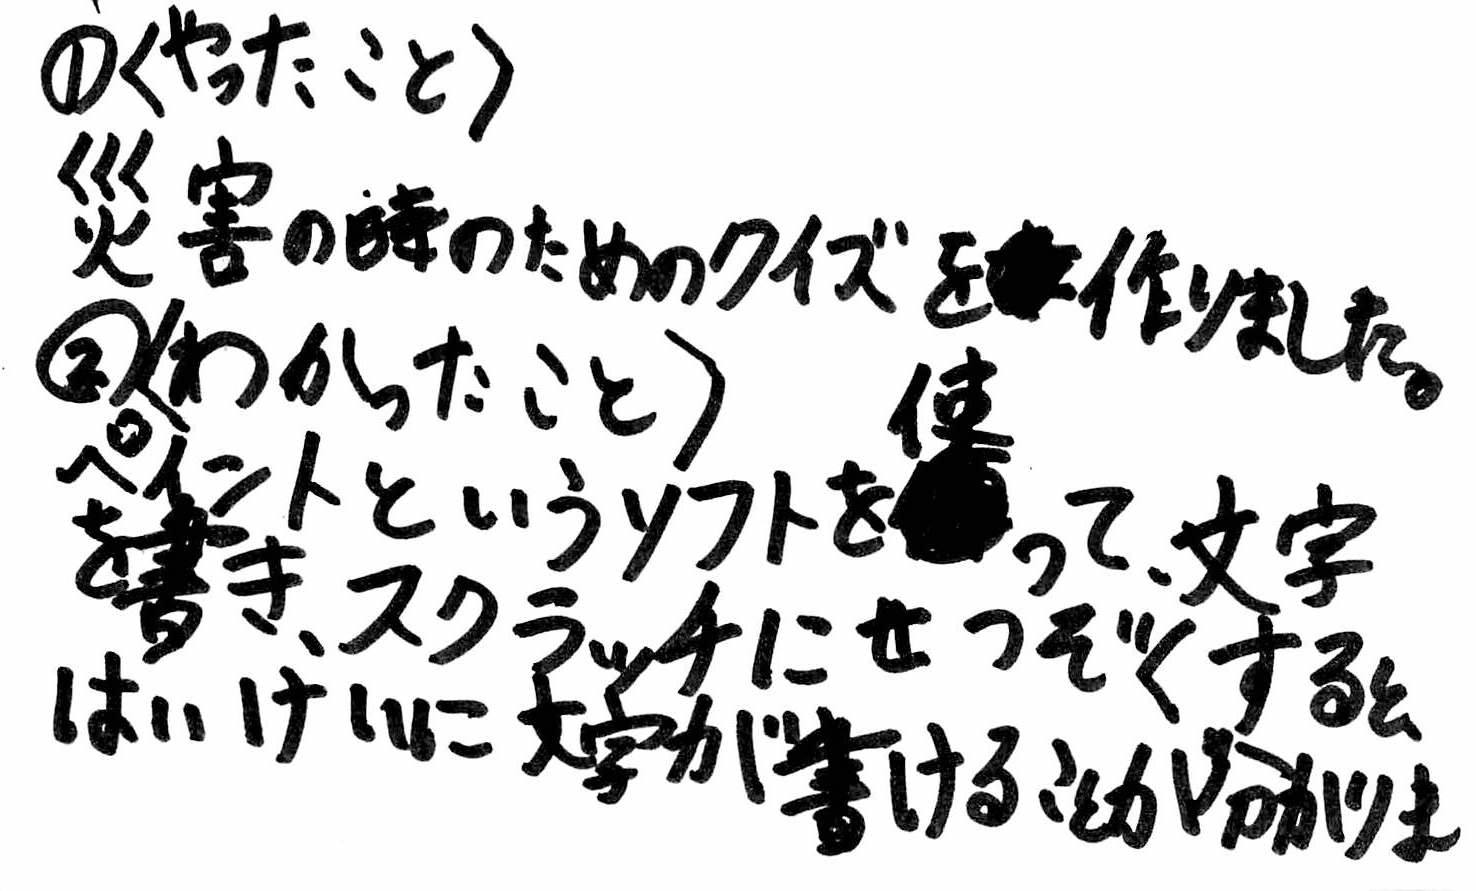 ①〈やったこと〉
災害の時のためのクイズを作りました。
②〈わかったこと〉
ペイントというソフトを使って、文字
を書き、スクラッチにせつぞくすると、
はいけいに文字が書けることが分かりま